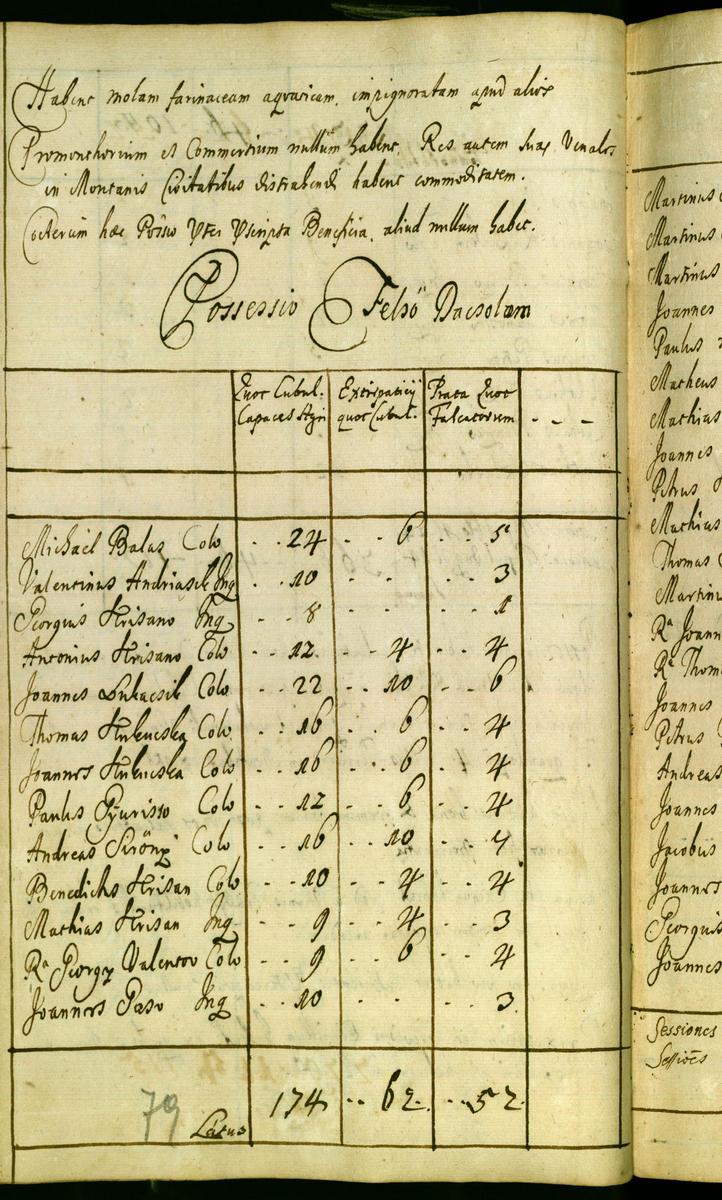 Habent molam farinaceam aquaticam, impignoratam apud alios
Promonthorium et Commertium nullum habent, Res autem suas Venales
in Montanis Civitatibus distrahendi habent commoditatem.
Coeterum haec Possio beneficia, aliud nullum habet.
Possessio Felsö Dacsolam
Quot Cubul. Capaces Agri
Extirpaticÿ quot Cubul.
Prata Quot Falcatorum
- - -
Michael Balas Colo - - 24 - - 6 - - 5
Valentinus Andriasik Inq - - 10 - - - - 3
Georgius Hrisano Inq - - 8 - - - - 1
Antonius Hrisano Colo - - 12 - - 4 - - 4
Joannes Lukacsik Colo - - 22 - - 10 - - 6
Thomas Hukucska Colo - - 16 - - 6 - - 4
Joannes Hukucska Colo - - 16 - - 6 - - 4
Paulus Gyurisso Colo - - 12 - - 6 - - 4
Andreas Colo - - 16 - - 10 - - 7
Benedictus Hrisan Colo - - 10 - - 4 - - 4
Mathias Hrisan Inq - - 9 - - 4 - - 3
Ra Georgy Valentov Colo - - 9 - - 6 - - 4
Joannes Paso Inq - - 10 - - - - 3
79 Latus 174 - - 62. - - 52.
Martinus
Martinus
Martinus
Joannes
Paulus
Matheus
Mathias
Joannes
Petrus
Mathias
Thomas
Martinu
Ra Joann
Ra Thom
Joannes
Petrus
Andreas
Joannes
Jacobus
Joannes
Georgius
Joannes
Sessiones
Sessiões